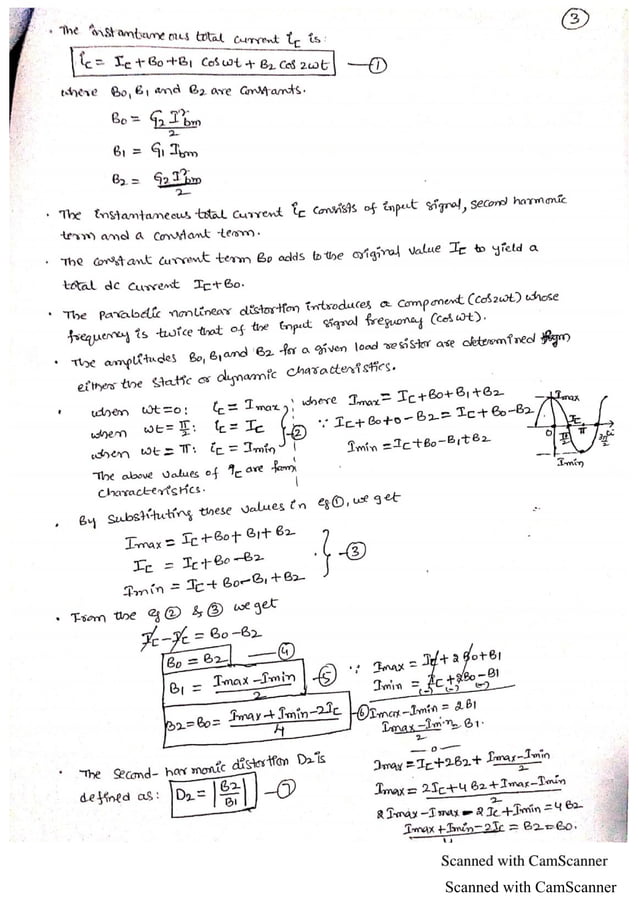 3
. The instantaneous total current ic is:
ic = Ic + B0 + B1 cos wt + B2 cos 2wt — 1
where B0, B1 and B2 are constants.
B0 = G2 I²bm / 2
B1 = G1 Ibm
B2 = G2 I²bm / 2
. The Instantaneous total current ic consists of input signal, second harmonic
term and a constant term.
. The constant current term B0 adds to the original value Ic to yield a
total dc current Ic + B0.
. The Parabolic nonlinear distortion introduces a component (cos2wt) whose
frequency is twice that of the input signal frequency (cos wt).
. The amplitudes B0, B1 and B2 for a given load resistor are determined from
either the static or dynamic characteristics.
. when wt=0: ic = Imax; where Imax = Ic + B0 + B1 + B2
when wt = π/2: ic = Ic } — 2 ∵ Ic + B0 + 0 - B2 = Ic + B0 - B2
when wt = π: ic = Imin Imin = Ic + B0 - B1 + B2
The above values of ic are from
characteristics.
Imax
Ic
0 π/2 π 3π/2
Imin
. By substituting these values in eq 1, we get
Imax = Ic + B0 + B1 + B2
Ic = Ic + B0 - B2 } — 3
Imin = Ic + B0 - B1 + B2
. From the eq 2 & 3 we get
Ic - Ic = B0 - B2
B0 = B2 — 4
B1 = Imax - Imin / 2 — 5
B2 = B0 = Imax + Imin - 2Ic / 4 — 6
∵ Imax = Ic + 2B0 + B1
Imin = Ic + 2B0 - B1
(-) (-) (-)
Imax - Imin = 2B1
Imax - Imin / 2 = B1.
— 0 —
Imax = Ic + 2B2 + Imax - Imin / 2
Imax = 2Ic + 4B2 + Imax - Imin / 2
2 Imax - Imax - 2Ic + Imin = 4B2
Imax + Imin - 2Ic / 4 = B2 = B0.
. The second-harmonic distortion D2 is
defined as: D2 = |B2 / B1| — 7
Scanned with CamScanner
Scanned with CamScanner